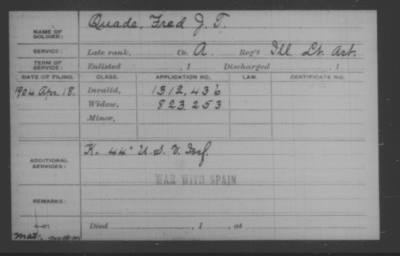 NAME OF SOLDIER: Quade, Fred J. T.
SERVICE: Late rank, Co. A. Reg't Ill Lt. Art.
TERM OF SERVICE: Enlisted , 1 Discharged , 1
DATE OF FILING. CLASS. APPLICATION NO. LAW. CERTIFICATE NO.
1904 Apr. 18. Invalid, 1312,436
Widow, 823 253
Minor,
ADDITIONAL SERVICES: K. 44" U.S.V. Inf.
WAR WITH SPAIN
REMARKS:
Died , 1 , at